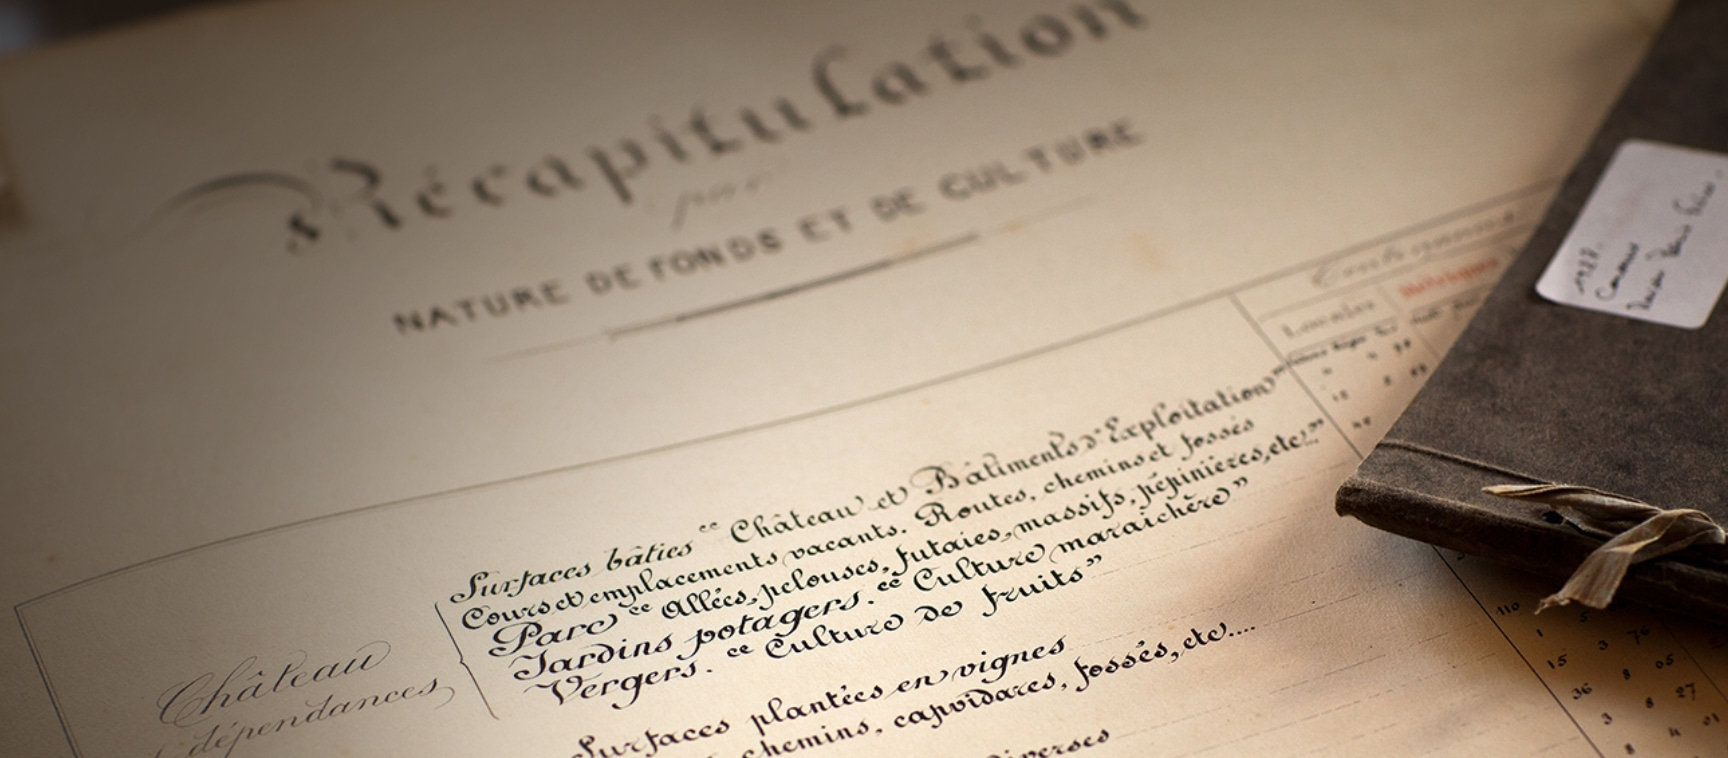 Récapitulation
par
NATURE DE FONDS ET DE CULTURE
Contenances
Locales
Métriques
Surfaces bâties "Château et Bâtiments d'Exploitation"
Cours et emplacements vacants. Routes, chemins et fossés
Parc "Allées, pelouses, futaies, massifs, pépinières, etc..."
Jardins potagers. "Culture maraichère"
Vergers. "Culture de fruits"
Château
dépendances
Surfaces plantées en vignes
chemins, capvidares, fossés, etc....
diverses
110
1 5
15 3 76
36 8 05
3 8 27